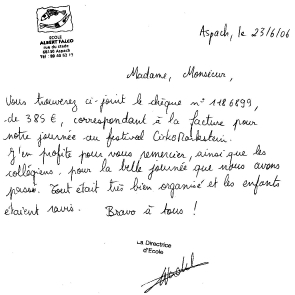 ECOLE
ALBERT FALCO
rue du stade
68130 Aspach
Aspach, le 23/6/06
Madame, Monsieur,
Vous trouverez ci-joint le chèque n° 1186899,
de 385 €, correspondant à la facture pour
notre journée au festival
J'en profite pour vous remercier, ainsi que les
collégiens, pour la belle journée que nous avons
passé. Tout était très bien organisé et les enfants
étaient ravis. Bravo à tous !
La Directrice
d'Ecole